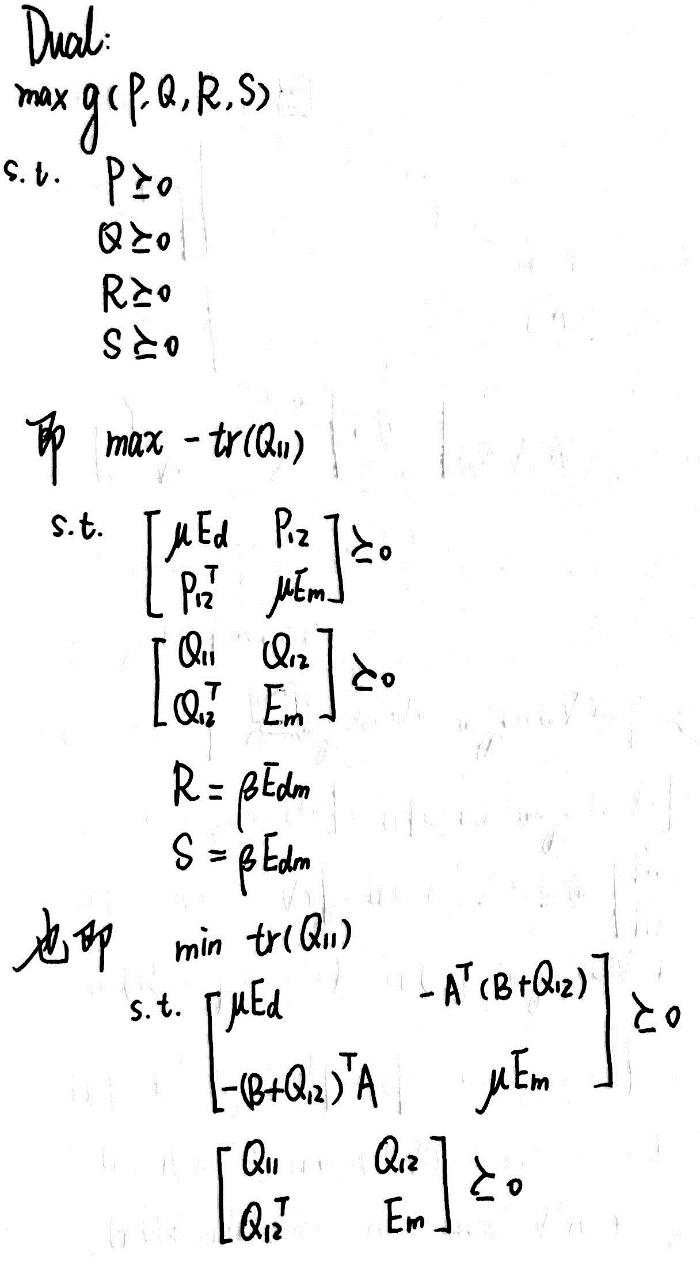 Dual:
max g(P,Q,R,S)
s.t. P⪰0
Q⪰0
R⪰0
S⪰0
即 max -tr(Q₁₁)
s.t. [μE_d P₁₂
P₁₂ᵀ μE_m] ⪰0
[Q₁₁ Q₁₂
Q₁₂ᵀ E_m] ⪰0
R = βE_dm
S = βE_dm
也即 min tr(Q₁₁)
s.t. [μE_d -Aᵀ(B+Q₁₂)
-(B+Q₁₂)ᵀA μE_m] ⪰0
[Q₁₁ Q₁₂
Q₁₂ᵀ E_m] ⪰0